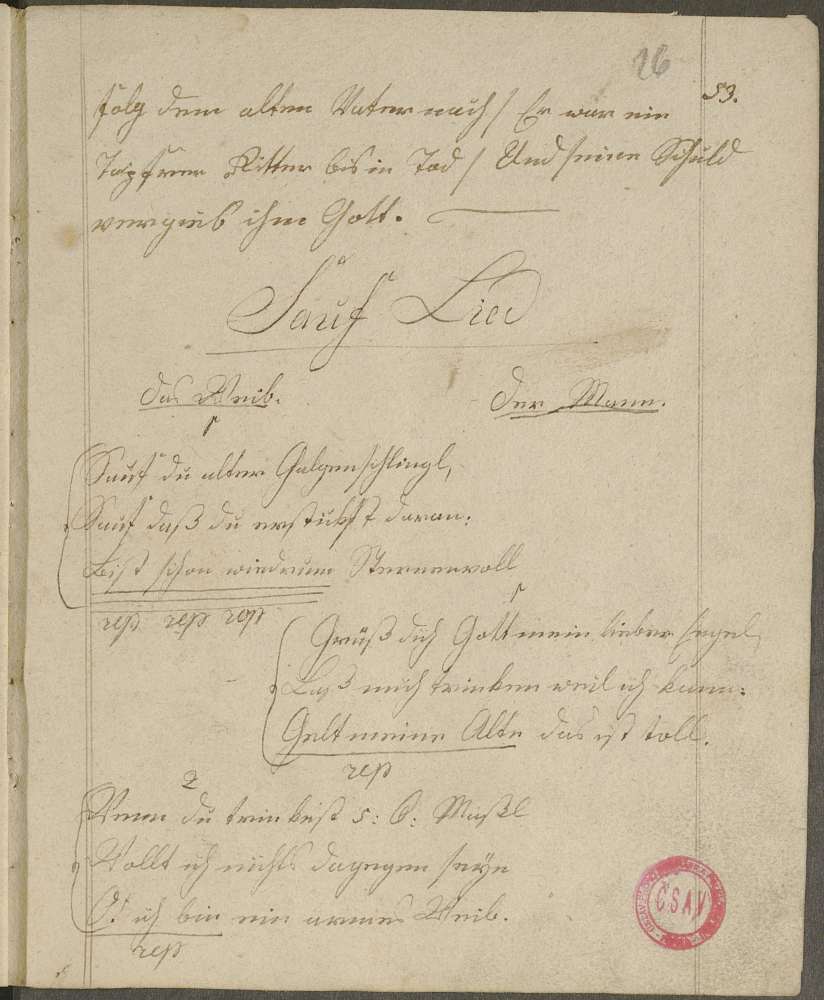 16
53.
folg dem alten Vater nach / Er war ein
Tapfrer Ritter bis in Tod / Und seine Schuld
vergieb ihm Gott.
Sauf Lied
Das Weib.
Der Mann.
1
Sauf du alter Galgenschlingl,
Sauf daß du erstickst daran:
Bist schon wiedrum Sternenvoll
rep rep rep
1
Grüß dich Gott mein lieber Engel,
Laß mich trinken weil ich kann:
Gelt meine Alte das ist toll.
rep
2
Wenn du trinkest 5: 6: Maßl
Wollt ich nichts dagegen seyn
O! ich bin ein armes Weib.
rep
ČSAV